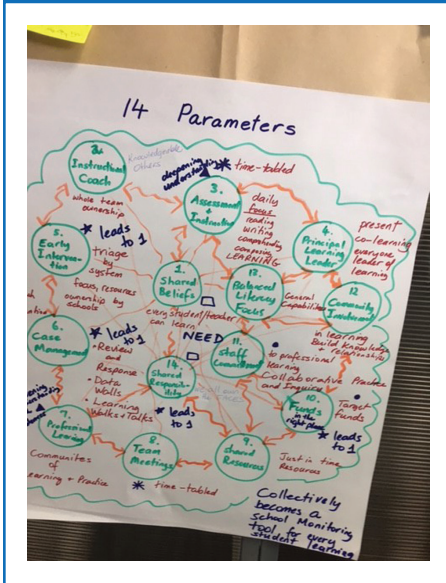 14 Parameters
2.
Instructional
Coach
Knowledgable
Others
whole team
ownership
deepening
understanding
* time-tabled
3.
Assessment
+
Instruction
daily
focus
reading
writing
comprehending
composing
LEARNING
4.
Principal
Learning
Leader
present
co-learning
everyone
leader of
learning
5.
Early
Interven-
tion
* leads
to 1
triage
by
system
focus, resources
ownership by
schools
1.
Shared
Beliefs
every student/teacher
can learn!
13.
Balanced
Literacy
Focus
General
Capabilities
12
Community
Involvement
in learning
Build Knowledge
+ relationship
6.
Case
Management
* leads
to 1
• Review
and
Response
• Data
Walls
• Learning
Walks + Talks
NEED
14.
Shared
Responsi-
bility
* leads
to 1
11.
Staff
Commitment
to professional
learning
Collaborative
and Inquiry
Practice
10.
Funds
in the
right place
Target
funds
* leads
to 1
7.
Professional
Learning
Communites
of
Learning + Practice
8.
Team
Meetings
* time-tabled
9.
Shared
Resources
Just in time
Resources
Collectively
becomes a
school Monitoring
tool for every
student learning